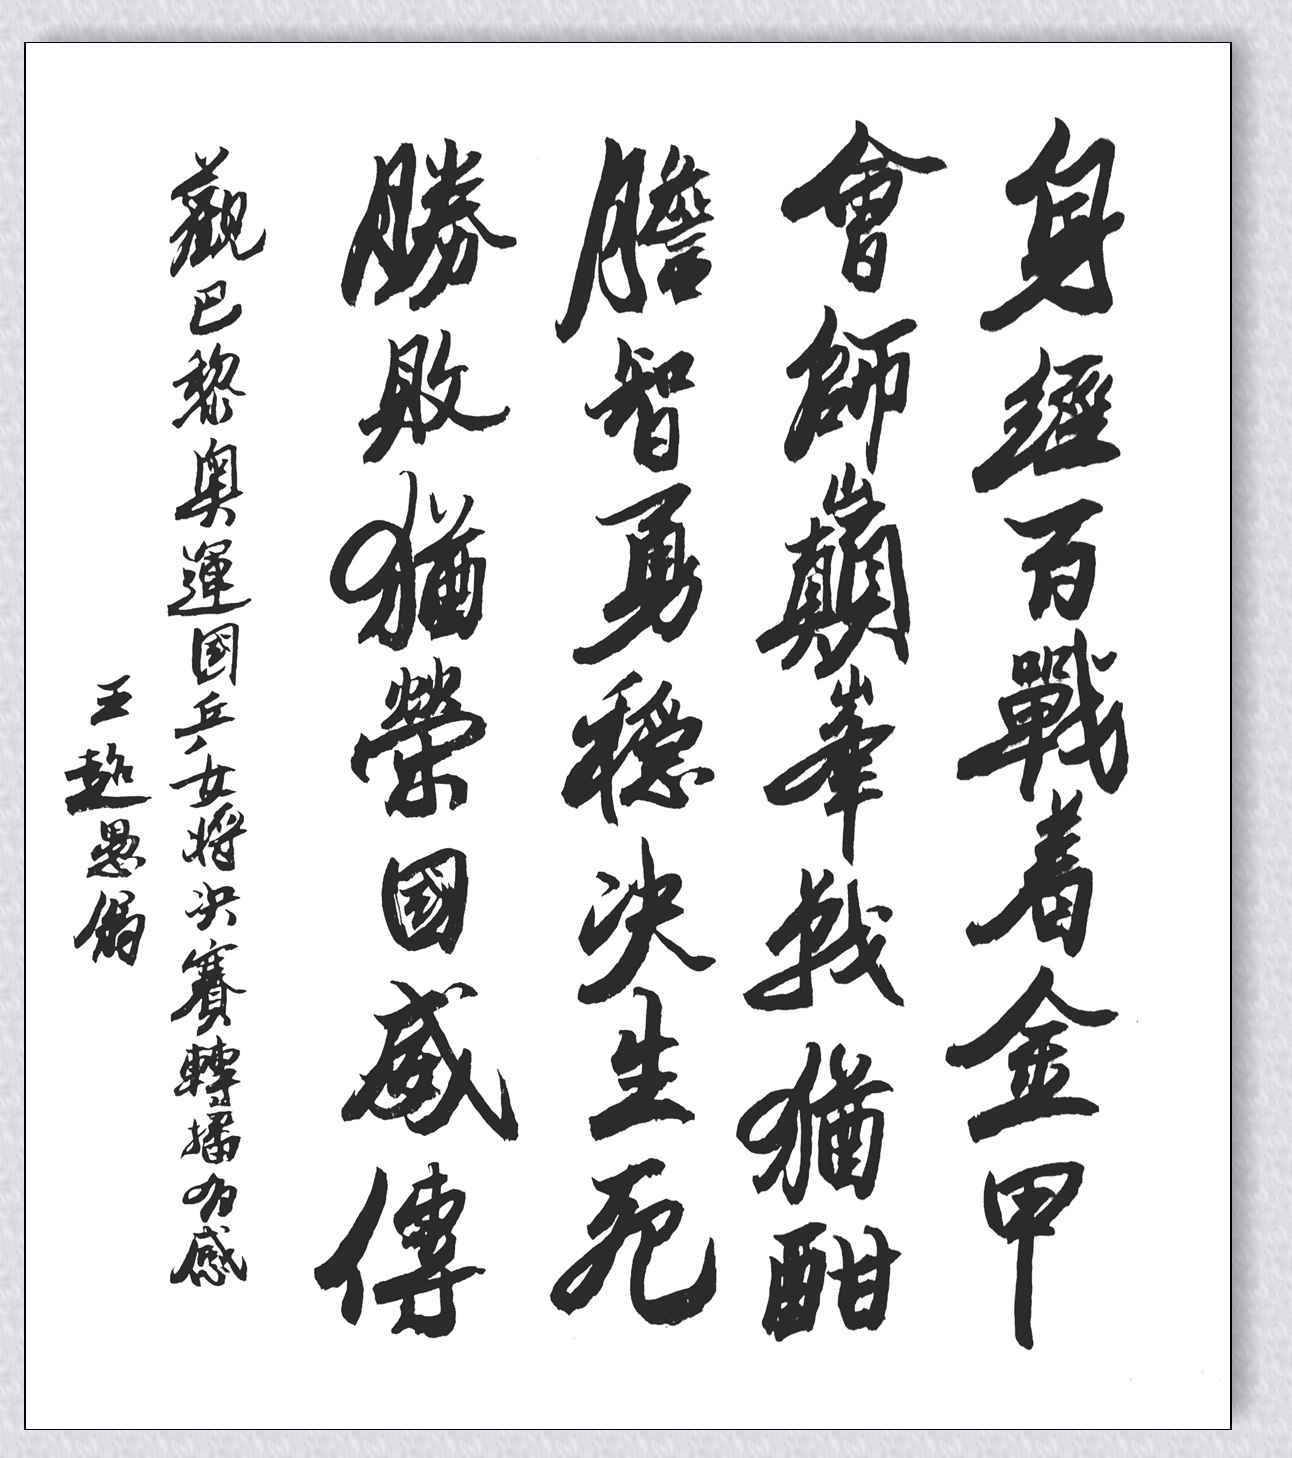 身經百戰着金甲
會師巔峯戰猶酣
膽智勇穩決生死
勝敗猶榮國威傳
觀巴黎奧運國乒女將決賽轉播有感
王超愚